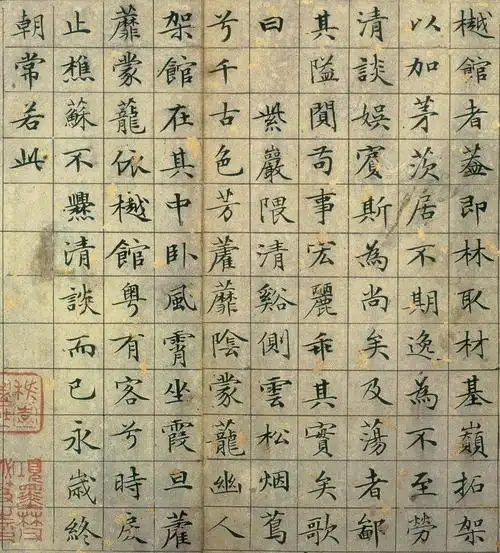 樾館者蓋即林取材基巔拓架
以加茅茨居不期逸為不至勞
清談娛賓斯為尚矣及蕩者鄙
其隘聞苟事宏麗乖其實矣歌
曰紫巖隈清谿側雲松烟蔦
兮千古色芳藿蘼陰蒙蘢幽人
架館在其中臥風霄坐霞旦藿
蘼蒙蘢依樾館粵有客兮時戾
止樵蘇不爨清談而已永歲終
朝常若此